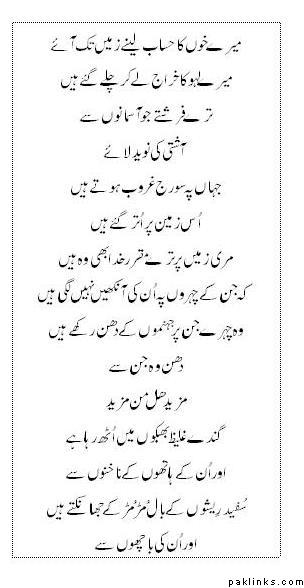 میرے خوں کا حساب لینے زمیں تک آئے
میرے لہو کا خراج لے کر چلے گئے ہیں
ترے فرشتے جو آسمانوں سے
آشتی کی نوید لائے
جہاں پہ سورج غروب ہوتے ہیں
اُس زمین پر اُتر گئے ہیں
مری زمیں پر ترے مقرر خدا بھی وہ ہیں
کہ جن کے چہروں پہ اُن کی آنکھیں نہیں لگی ہیں
وہ چہرے جن پر جہنموں کے دھن رکھے ہیں
دھن وہ جن سے
مزید ھل من مزید
گندے غلیظ بھبکوں میں اُٹھ رہا ہے
اور اُن کے ہاتھوں کے ناخنوں سے
سُفید ریشوں کے بال مُڑ مُڑ کے جھانکتے ہیں
اور اُن کی باچھوں سے
paklinks.com